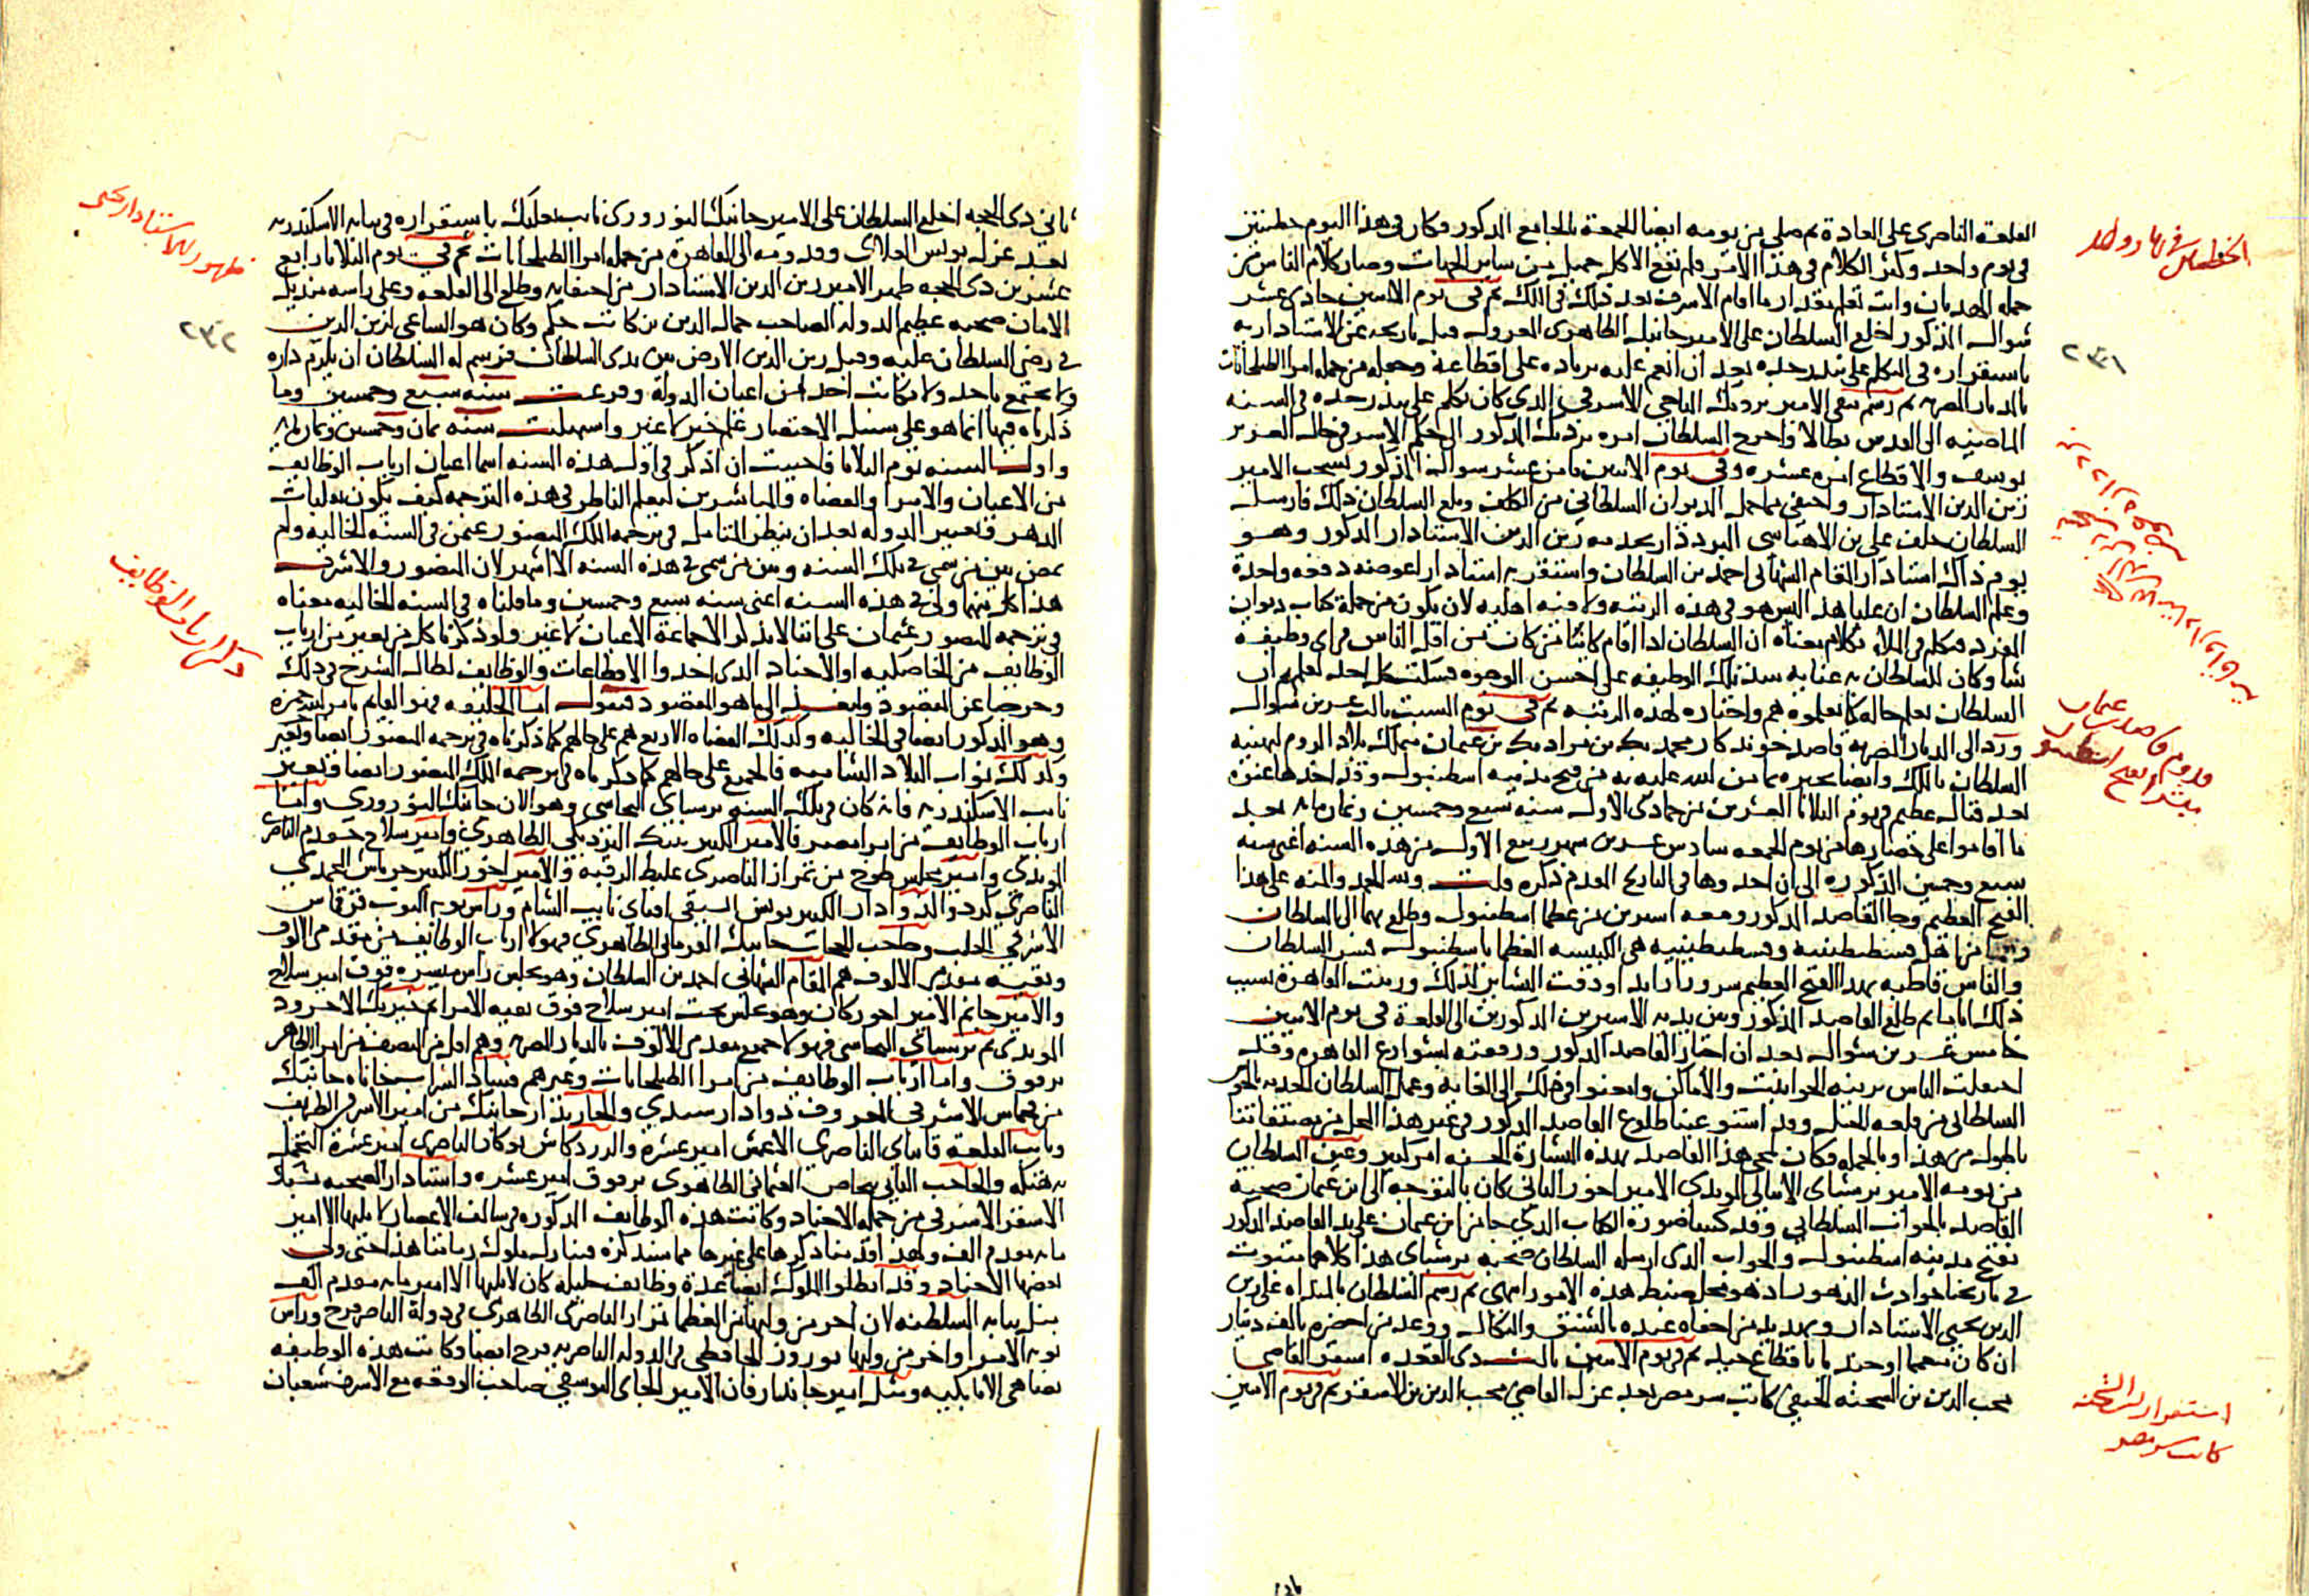 القلعة الناصرى على العادة ثم صلى من يومه ايضا الجمعة بالجامع المذكور وكان في هذا اليوم خطبتين
في يوم واحد وكثر الكلام في هذا الامر فلم تقع الا كل جميل من ساير الجهات وصار كلام الناس من
جملة الهديان وانت تعلم مقدار ما اقام الاشرف بعد ذلك في الملك ثم في يوم الاثنين حادى عشر
شوال المذكور اخلع السلطان على الامير جانبك الظاهرى المعزول قبل تاريخه عن الاستادارية
باستقراره في التكلم على بندر جده بعد ان انعم عليه بزياده على اقطاعه وجعله من جملة امرا الطبلخانات
بالديار المصرية ثم رسم بنفى الامير بردبك التاجى الاشرفى الذى كان تكلم على بندر جده في السنه
الماضيه الى القدس بطالا واخرج السلطان امره بردبك المذكور الى جكم الاشرفى خال العزيز
يوسف والاقطاع امره عشره وفي يوم الاثنين ثامن عشر شوال المذكور تسحب الامير
زين الدين الاستادار واختفى مما حمل الديوان السلطانى من الكلف وبلغ السلطان ذلك فارسل
السلطان خلف على بن الاهناسى البرددار بخدمه زين الدين الاستادار المذكور وهو
يوم ذاك استادار المقام الشهابى احمد بن السلطان واستقر به استادارا عوضه دفعه واحدة
وعلم السلطان ان عليا هذا ليس هو في هذه الرتبه ولا فيه اهليه لان يكون من جملة كتاب ديوان
المفرد فتكلم في الملا بكلام معناه ان السلطان اذا اقام كائنا من كان من اقل الناس في اى وظيفة
شا وكان للسلطان به عنايه سد تلك الوظيفه على احسن الوجوه فسكت كل احد لعلمهم ان
السلطان يعلم حاله كما يعلموه هم واختاره لهذه الرتبه ثم في يوم السبت ثالث عشرين شوال
ورد الى الديار المصريه قاصد خوندكار محمد بك بن مراد بك بن عثمان متملك بلاد الروم لتهنيه
السلطان بالملك وايضا يخبره بما من الله عليه به من فتح مدينه اسطنبول وقد اخذها عنوة
بعد قتال عظيم في يوم الثلاثا العشرين من جمادى الاولى سنه سبع وخمسين وثمان مائه بعد
ما اقاموا على حصارها من يوم الجمعه سادس عشرين شهر ربيع الاول من هذه السنه اعنى سنه
سبع وخمسين المذكوره الى ان اخدوها في التاريخ المقدم ذكره قلت ولله الحمد والمنه على هذا
الفتح العظيم وجا القاصد المذكور ومعه اسيرين من عظما اسطنبول وطلع بهما الى السلطان
وهما من اهل قسطنطينيه وقسطنطينيه هى الكنيسه العظما باسطنبول فسر السلطان
والناس قاطبه بهدا الفتح العظيم سرورا زايدا ودقت البشاير لذلك وزينت القاهرة بسبب
ذلك اياما ثم طلع القاصد المذكور وبين يديه الاسيرين المذكورين الى القلعة في يوم الاثنين
خامس عشرين شوال بعد ان اجتاز القاصد المذكور ورفقته بشوارع القاهره وقد
احتفلت الناس بزينه الحوانيت والاماكن وامعنوا في ذلك الى الغايه وعمل السلطان الخدمه بالحوش
السلطانى من قلعه الجبل وقد استوعبنا طلوع القاصد المذكور في غير هذا المحل من مصنفاتنا
باطول من هذا وبالجمله فكان لمجى هذا القاصد بهذه البشارة الحسنه امر كبير وعين السلطان
من يومه الامير برسباى الاينالى المويدى الامير اخور الثانى كان بالتوجه الى ابن عثمان صحبة
القاصد بالجواب السلطانى وقد كتبنا صورة الكتاب الذى جا من ابن عثمان على يد القاصد المذكور
بفتح مدينه اسطنبول والجواب الذى ارسله السلطان صحبة برسباى هذا كلاهما مثبوت
في تاريخنا حوادث الدهور اذ هو محل ضبط هذه الامور انتهى ثم رسم السلطان بالمناداه على زين
الدين يحيى الاستادار وتهديد من اخفاه عنده بالشنق والنكال ووعد من احضره بالف دينار
ان كان متعمما وجنديا باقطاع جيد ثم في يوم الاثنين ثالث ذى القعده استقر القاضى
محب الدين بن الشحنه الحنفى كاتب سر مصر بعد عزل القاضى محب الدين بن الاشقر ثم في يوم الاثنين
قدوم قاصد بن عثمان
استقرار ابن الشحنه
كاتب سر مصر
٢٣١
ثانى ذى الحجه اخلع السلطان على الامير جانبك النوروزى نايب بعلبك باستقراره في نيابه الاسكندريه
بعد عزل يونس العلاى وقدومه الى القاهرة من جمله امرا الطبلخانات ثم في يوم الثلاثا رابع
عشرين ذى الحجه ظهر الامير زين الدين الاستادار من اختفايه وطلع الى القلعه وعلى راسه منديل
الامان صحبه عظيم الدوله الصاحب جمال الدين بن كاتب جكم وكان هو الساعى لزين الدين
في رضى السلطان عليه وقبل زين الدين الارض بين يدى السلطان فرسم له السلطان ان يلزم داره
ولا يجتمع باحد ولا يكاتب احد من اعيان الدولة وفرغت سنه سبع وخمسين وما
ذكرناه فيها انما هو على سبيل الاختصار علم خبر لا غير واستهلت سنه ثمان وخمسين وثمان مائه
واول السنه يوم الثلاثا فاحببت ان اذكر في اول هذه السنه اسما اعيان ارباب الوظايف
من الاعيان والامرا والقضاه والمباشرين ليعلم الناظر في هذه الترجمه كيف يكون تقلبات
الدهر وتغيير الدوله بعد ان ينظر المتامل في ترجمه الملك المنصور عثمن في السنه الخاليه ولم
نعن بين من سمى في تلك السنه وبين من سمى في هذه السنه الا اشهر لان المنصور والاشرف
هذا كل منهما ولى في هذه السنه اعنى سنه سبع وخمسين وما قلناه في السنه الخاليه معناه
في ترجمه المنصور عثمان على اننا لا نذكر الا جماعة الاعيان لا غير ولو ذكرنا كل من تغير من ارباب
الوظايف من الخاصكيه او الاجناد الذى اخدوا الاقطاعات والوظايف لطال الشرح في ذلك
وخرجنا عن المقصود ولنعد الى ما هو المقصود فنقول اما الخليفه فهو القايم بامر الله حمزه
وهو المذكور ايضا في الخاليه وكذلك القضاه الاربع هم على حالهم كما ذكرناه في ترجمه المنصور ايضا وتغير
وكذلك نواب البلاد الشاميه فالجميع على حالهم كما ذكرناه في ترجمه الملك المنصور ايضا وتغير
نايب الاسكندريه فانه كان في تلك السنه برسباى البجاسى وهو الان جانبك النوروزى واما
ارباب الوظايف من امرا مصر فالامير الكبير تنبك البردبكى الظاهرى وامير سلاح خشقدم الناصرى
المويدى وامير مجلس طوخ من تمراز الناصرى غليظ الرقبه والامير اخور الكبير جرباش المحمدى
الناصرى كرد والدوادار الكبير يونس السيفى اقباى نايب الشام وراس نوبه النوب قرقماس
الاشرفى الجلب وحاجب الحجاب جانبك القرمانى الظاهرى فهولا ارباب الوظايف من مقدمى الالوف
وبقيه مقدمى الالوف هم المقام الشهابى احمد بن السلطان وهو يجلس راس ميسره فوق امير سلاح
والامير جانم الامير اخور كان وهو يجلس تحت امير سلاح فوق بقيه الامرا ثم خيربك الاجرود
المويدى ثم برسباى البجاسى فهولا جميع مقدمى الالوف بالديار المصريه وهم اقل من النصف من امرا الظاهر
برقوق واما ارباب الوظايف من امرا الطبلخانات وغيرهم فشاد الشراب خاناه جانبك
من قجماس الاشرفى المعروف دوادار سيدى والخازندار جانبك من امير الاشرفى الظريف
ونايب القلعه قانباى الناصرى الاعمش امير عشرة والزردكاش نوكار الناصرى امير عشرة
والحاجب الثانى سمام العثمانى الظاهرى برقوق امير عشره واستادار الصحبه
الاشقر الاشرفى من جمله الاجناد وكانت هذه الوظايف المذكوره في سالف الاعصار لا يليها الا امير
مايه مقدم الف ولهذا قدمنا ذكرها على غيرها مما سنذكره فتنازل ملوك زماننا هذا حتى ولى
بعضها الاجناد وقد ابطلوا الملوك ايضا عدة وظايف جليله كان لا يليها الا امير مايه مقدم الف
مثل نيابه السلطنه لان اخر من وليها من العظما تمراز الناصرى الظاهرى في دولة الناصر فرج وراس
نوبه الامرا واخر من وليها نوروز الحافظى في الدوله الناصريه فرج ايضا وكانت هذه الوظيفه
تضاهى الاتابكيه ومثل امير جاندار فان الامير الجاى اليوسفى صاحب الوقعه مع الاشرف شعبان
ظهور الاستادار يحيى
ذكر ارباب الوظايف
٢٣٢